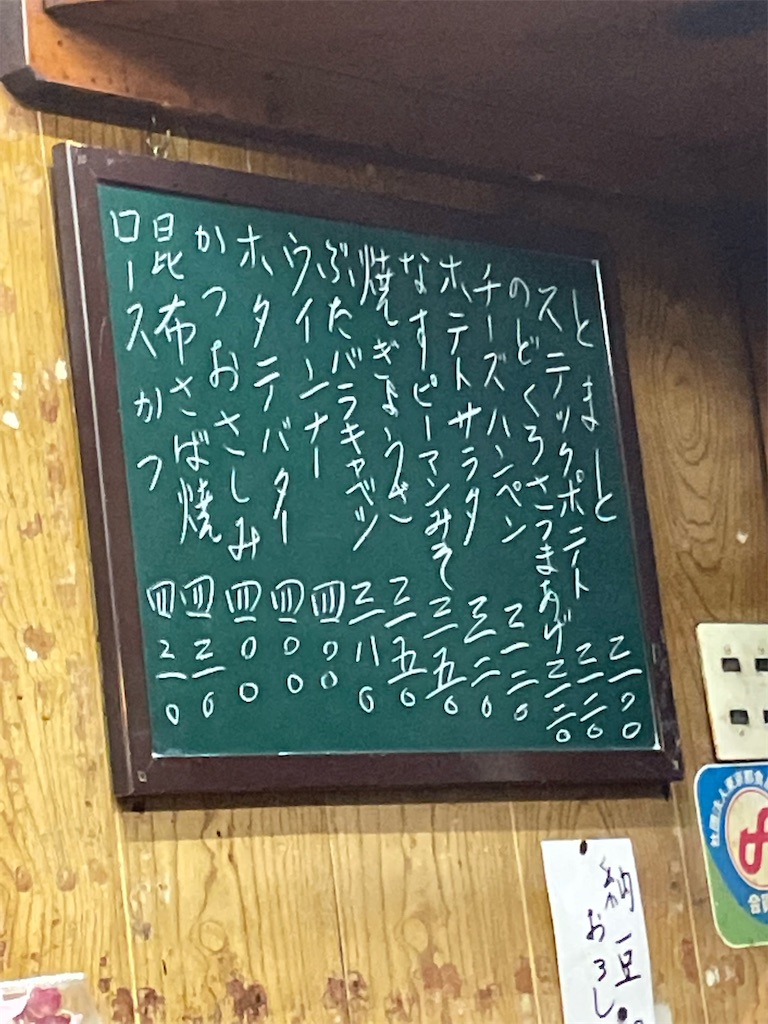 とまと 三〇〇
ステックポテト 三二〇
のどくろさつまあげ 三二〇
チーズハンペン 三二〇
ポテトサラダ 三二〇
なすピーマンみそ 三五〇
焼ぎょうざ 三五〇
ぶたバラキャベツ 三八〇
ウインナー 四〇〇
ホタテバター 四〇〇
かつおさしみ 四〇〇
昆布さば焼 四三〇
ロースかつ 四三〇
納豆
おろし
社団法人東京都食